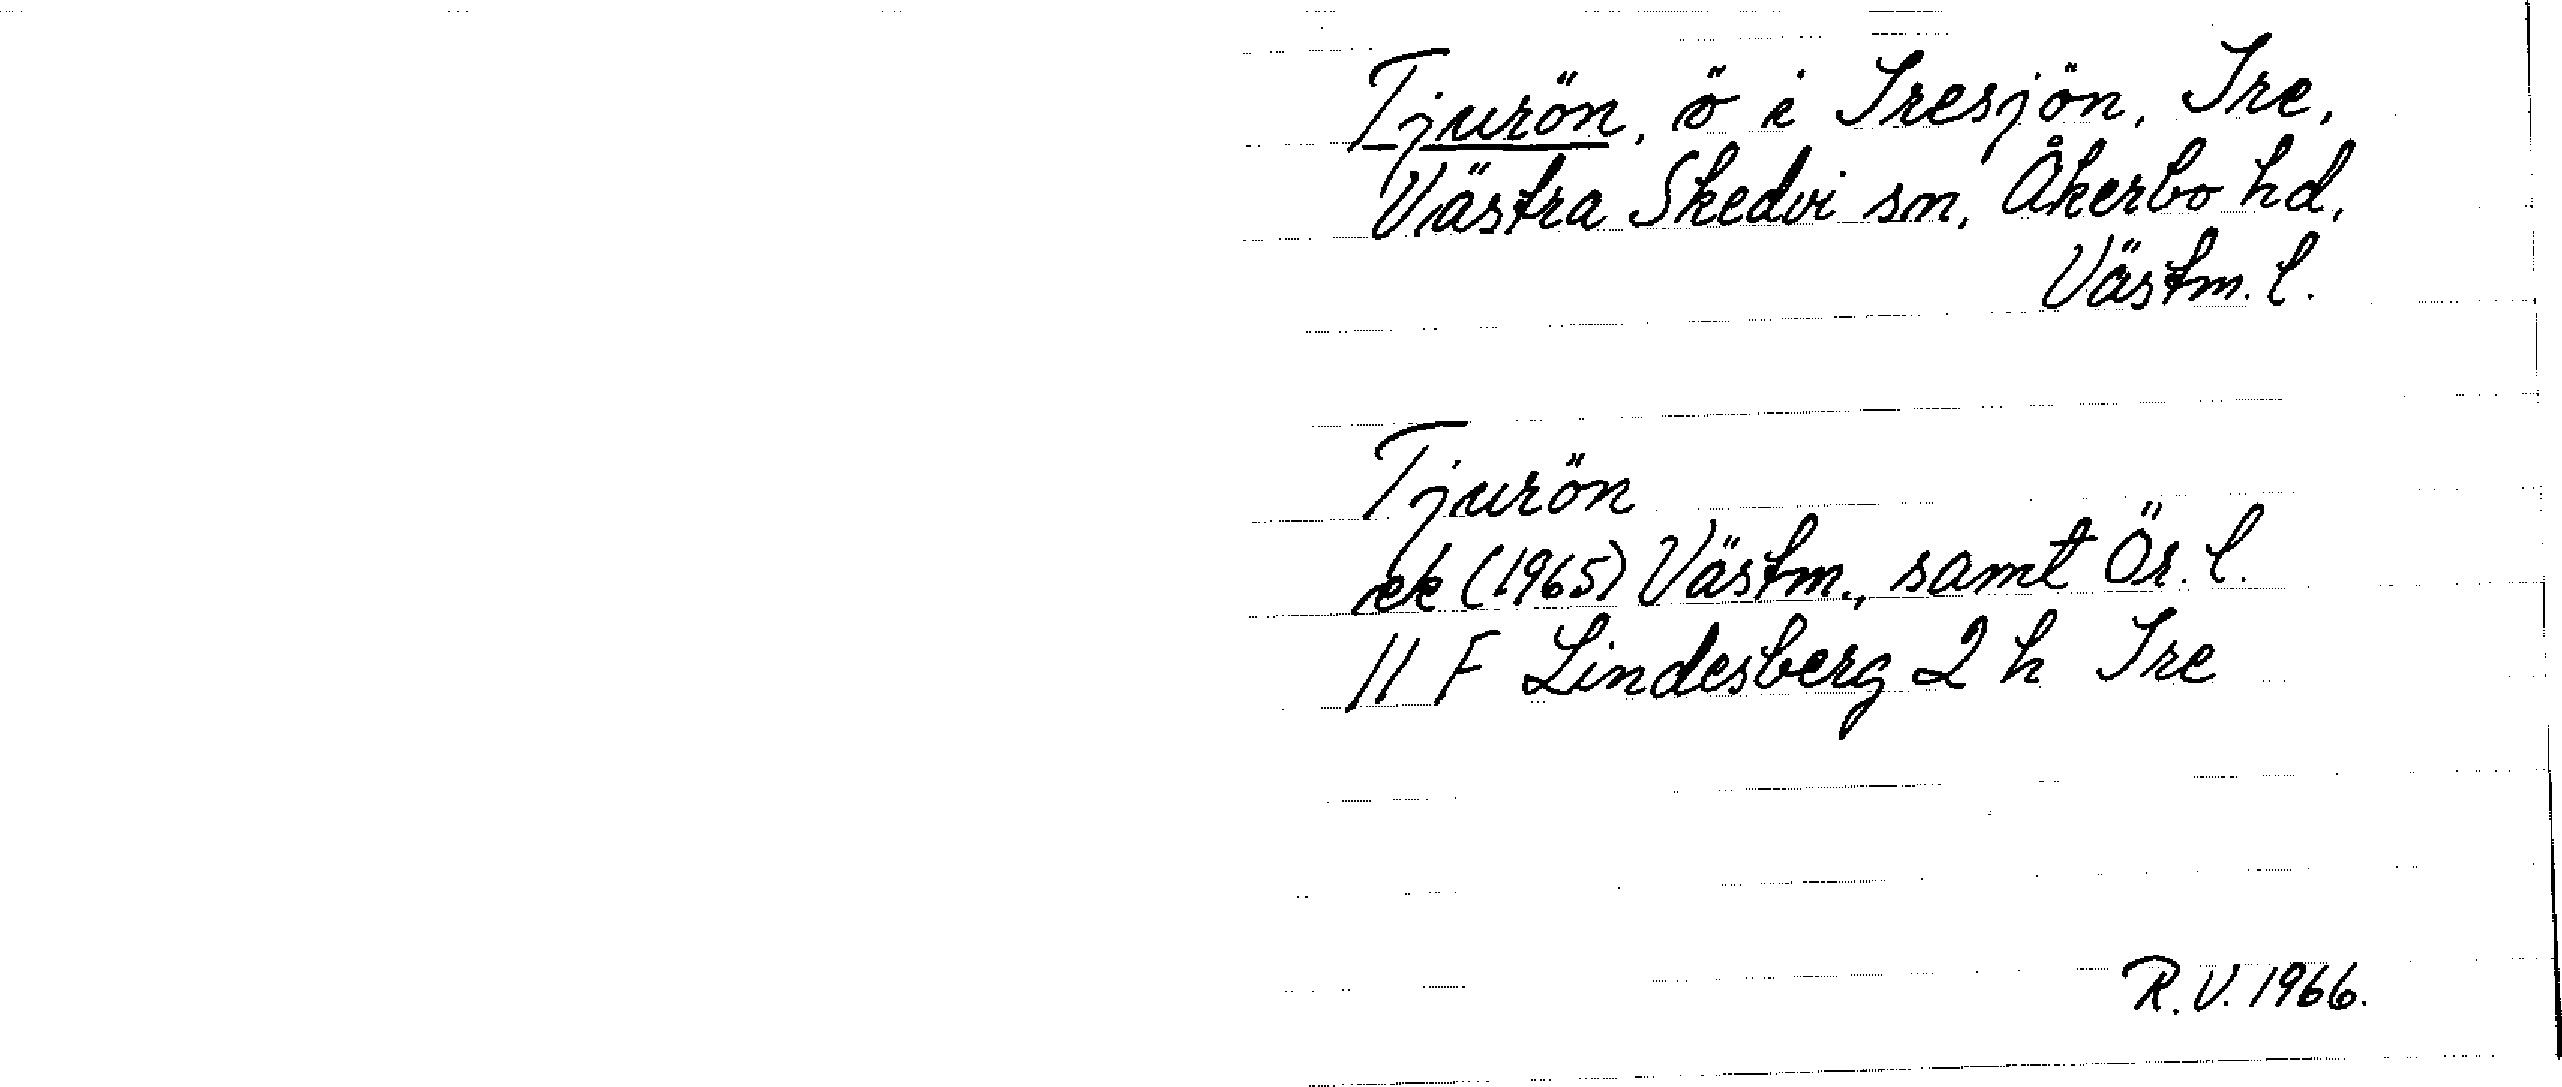 Tjurön, ö i Iresjön, Ire,
Västra Skedvi sn, Åkerbo hd,
Västm. l.
Tjurön
ek (1965) Västm., samt Ör. l.
11 F Lindesberg 2 h Ire
R.V. 1966.